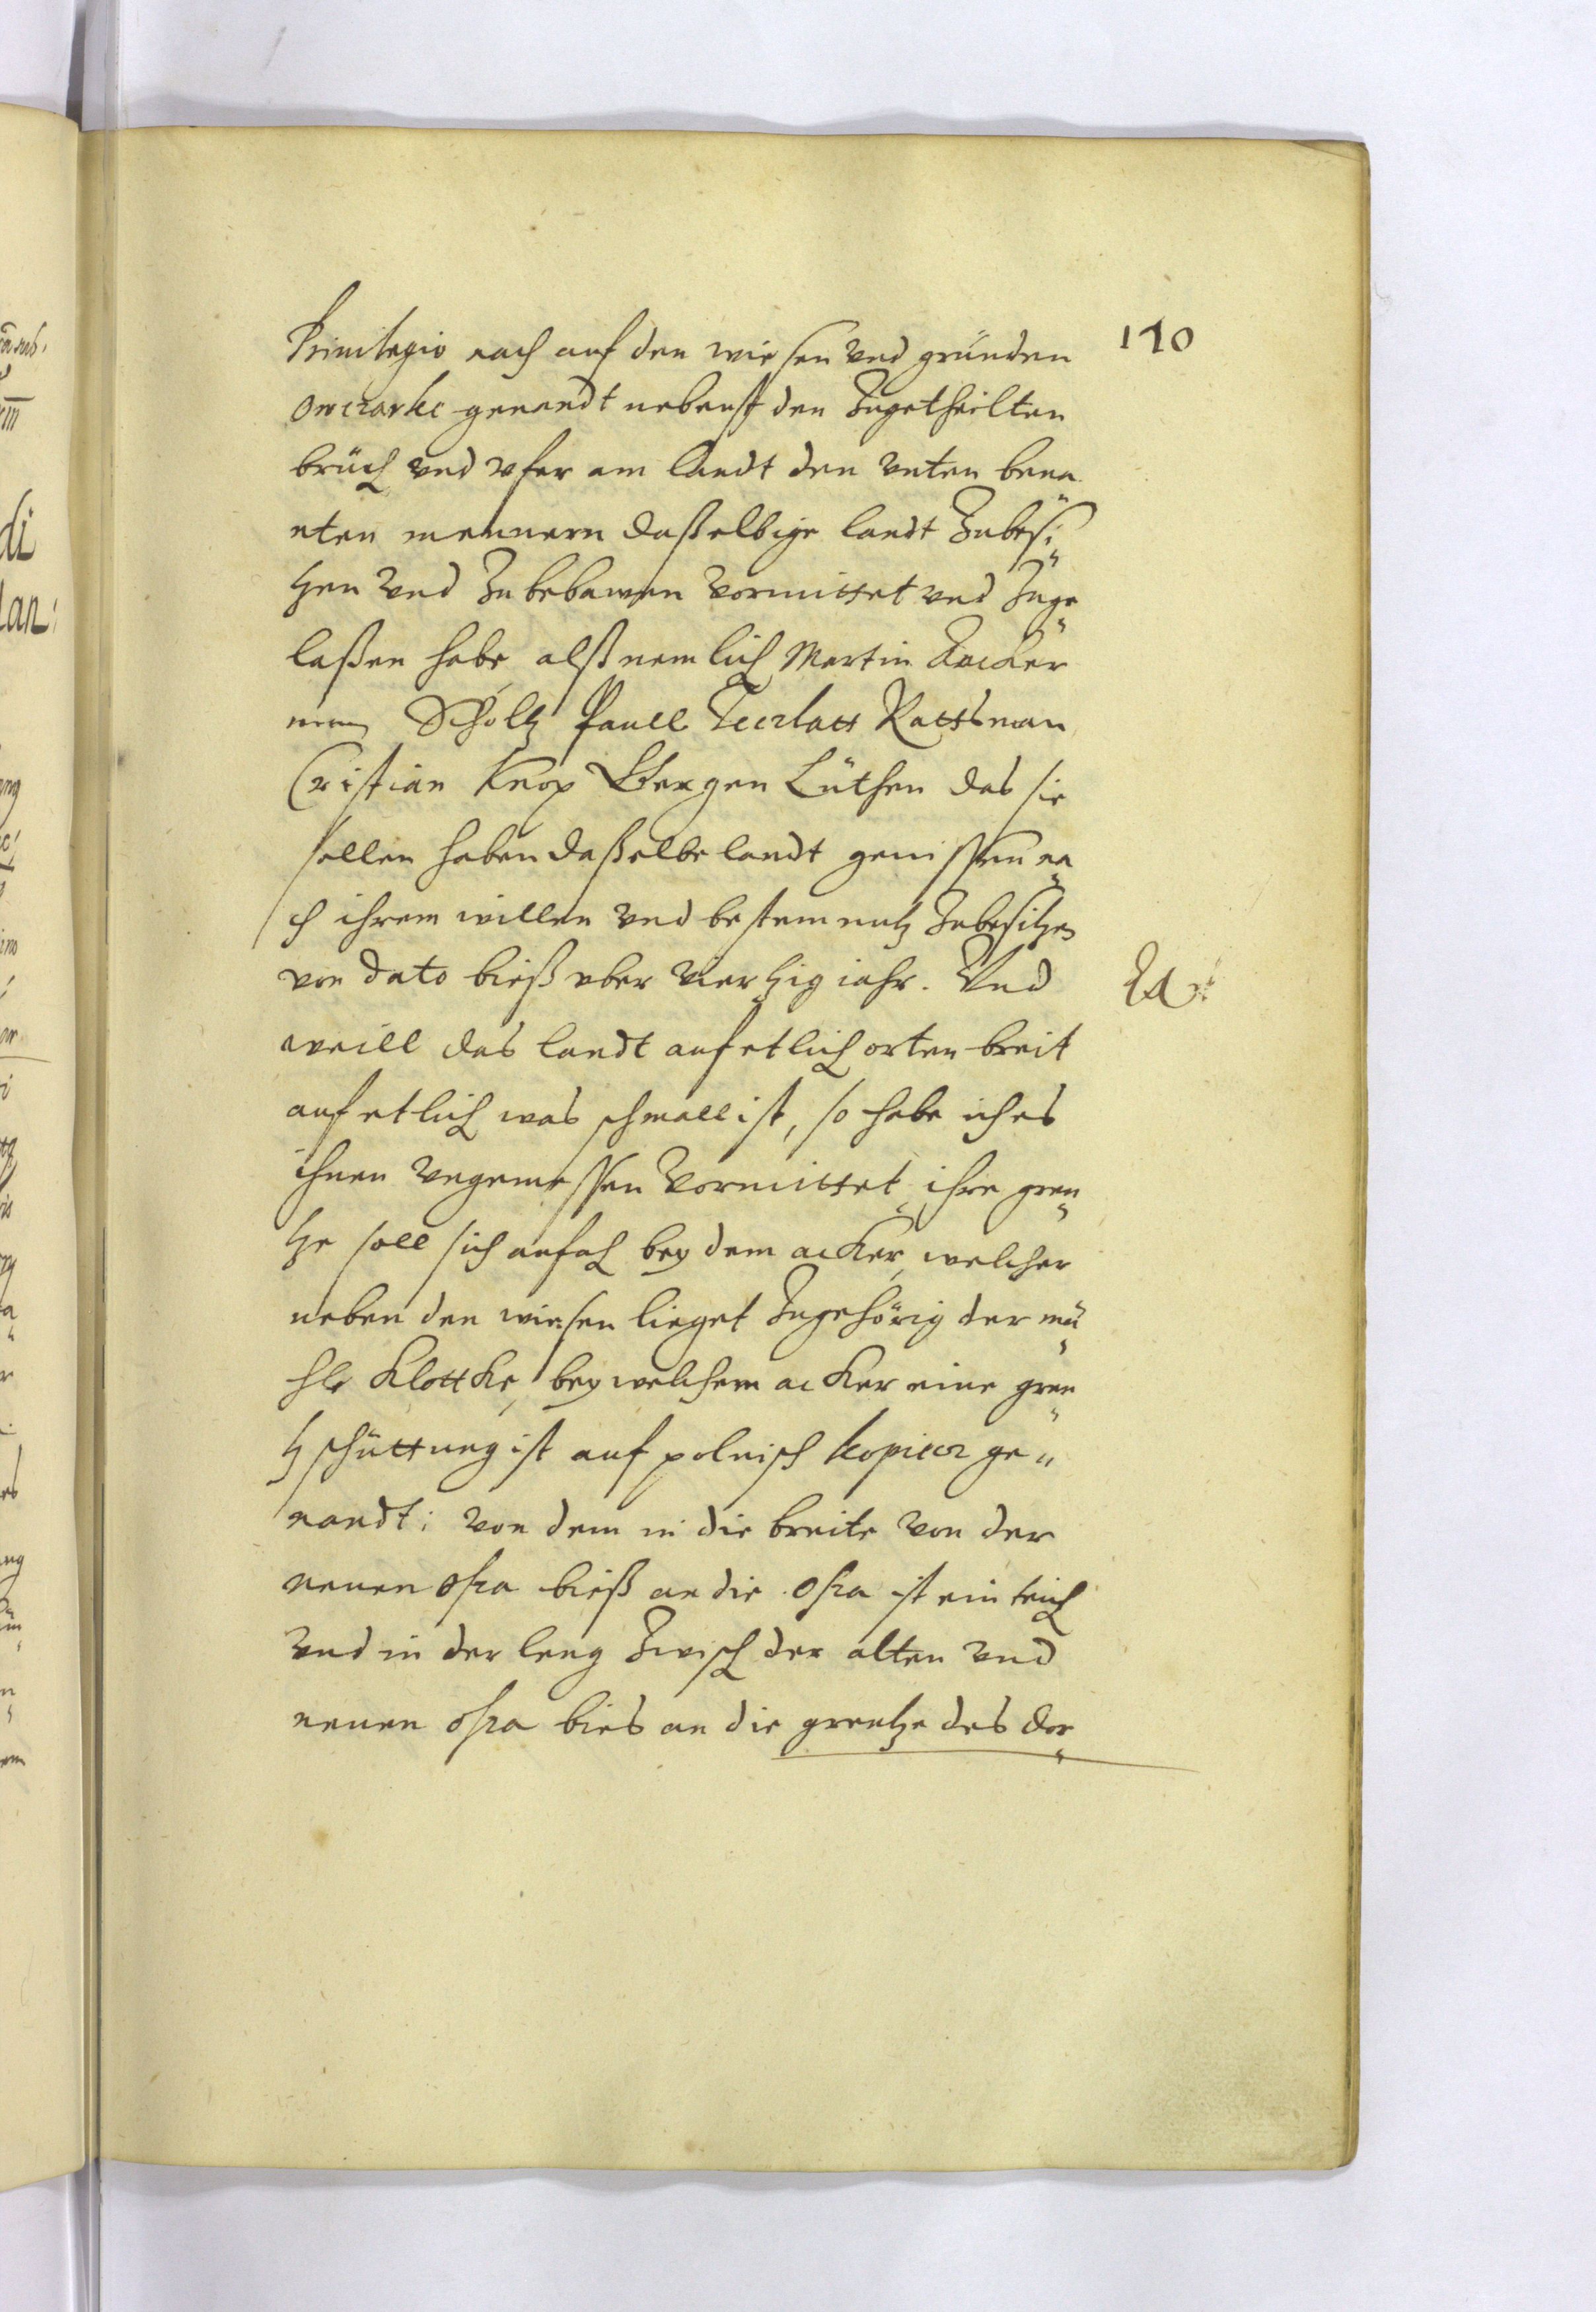 170
Privilegio nach auf den wiesen vnd gründen
Owczarke genandt nebenst den Zugetheilten
brüch vnd vfer am landt den vnten bena
nten mennern daßelbige landt Zubesi
tzen vnd Zubebawen vormittet vnd Zuge
laßen habe alß nemlich Martin Zacker
man Scholtz Paull Teczlaff Rattsman
Cristian Knop Gergen Lüthen das sie
sollen haben daßelbe landt genissen na
ch ihrem willen vnd bestem nutz Zubesitzen
von dato bieß vber viertzig iahr. Vnd
weill das landt auf etlich orten breit
auf etlich was schmall ist, so habe ich es
ihnen vngemessen vormittet, ihre gren
tze soll sich anfach bey dem acker, welcher
neben den wiesen lieget Zugehörig der mü
hle Klottke, bey welchem acker eine gren
tzschüttung ist auf polnisch kopiecz ge"
nandt: von dem in die breite von der
neuen Osza bieß an die Osza ist ein teich
vnd in der leng Zwisch der alten vnd
neuen Osza bies an die grentze des dor